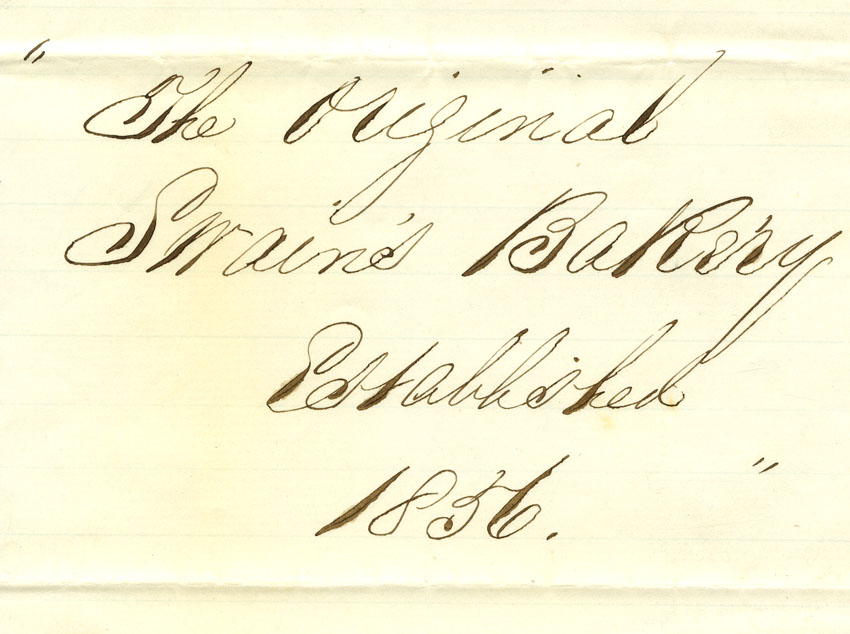 "The Original
Swain's Bakery
Established
1856."